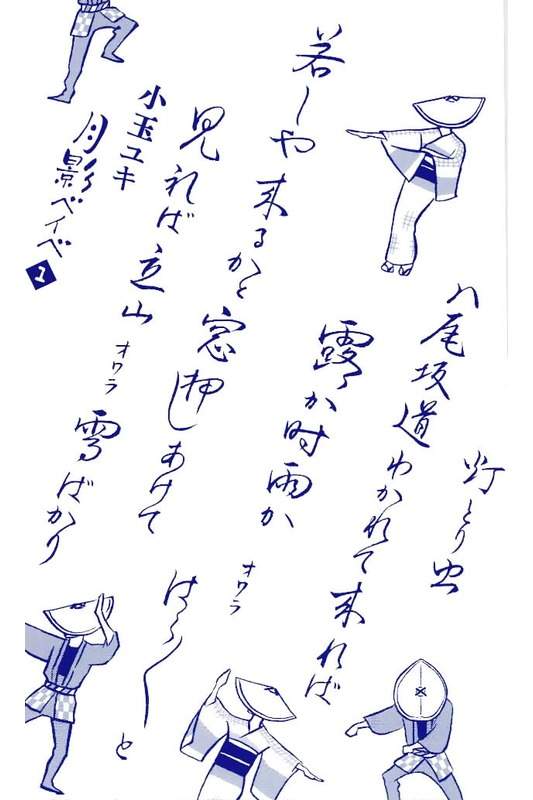 灯とり虫
八尾坂道わかれて来れば
露か時雨か オワラ はら〳〵と
若しや来るかと窓押しあけて
見れば立山 オワラ 雪ばかり
小玉ユキ
月影ベイベ 1